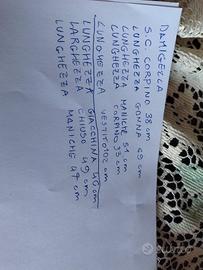 DAMIGELLA
S.C. CORPINO 38 cm
LUNGHEZZA GONNA 69 cm
LUNGHEZZA MANICHE 51 cm
LUNGHEZZA CORPINO 33 cm
LUNGHEZZA VESTITO 102 cm
LUNGHEZZA GIACCHINA 46 cm
LARGHEZZA CHIUSO 49 cm
LUNGHEZZA MANICHE 47 cm